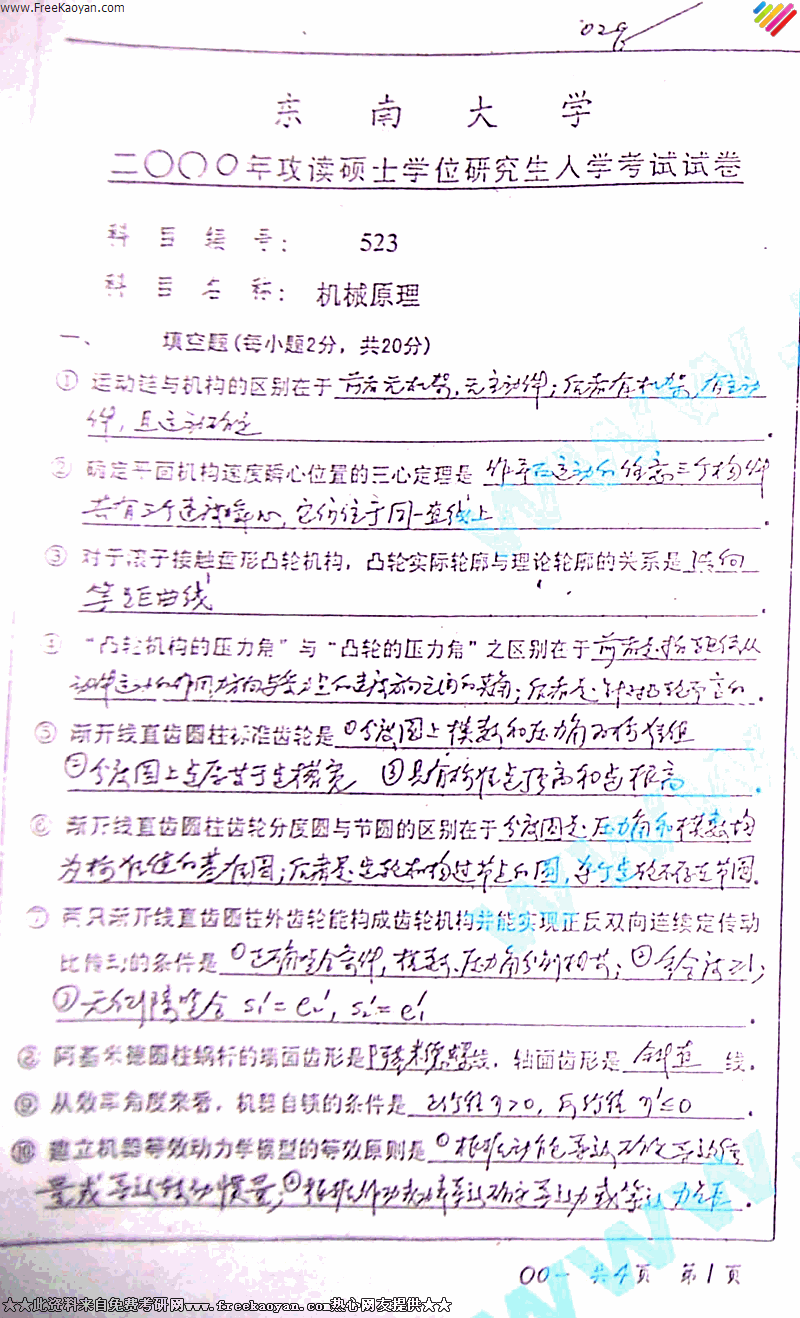 www.FreeKaoyan.com
029
东 南 大 学
二〇〇〇年攻读硕士学位研究生入学考试试卷
科 目 编 号: 523
科 目 名 称: 机械原理
一、 填空题(每小题2分，共20分)
① 运动链与机构的区别在于 前者无机架,无主动件;后者有机架,有主动
件,且运动确定.
② 确定平面机构速度瞬心位置的三心定理是 作平面运动的任意三个构件
共有三个速度瞬心,它们位于同一直线上.
③ 对于滚子接触盘形凸轮机构，凸轮实际轮廓与理论轮廓的关系是 法向
等距曲线.
④ “凸轮机构的压力角”与“凸轮的压力角”之区别在于 前者是指
⑤ 渐开线直齿圆柱标准齿轮是 ①分度圆上模数和压力角为标准值
②分度圆上齿厚等于齿槽宽 ③具有标准齿顶高和齿根高.
⑥ 渐开线直齿圆柱齿轮分度圆与节圆的区别在于 分度圆是压力角和模数均
为标准值的基准圆;后者是齿轮机构过节点的圆,单个齿轮不存在节圆.
⑦ 两只渐开线直齿圆柱外齿轮能构成齿轮机构并能实现正反双向连续定传动
比传动的条件是 ①正确啮合条件,模数、压力角分别相等;②重合度≥1;
③无侧隙啮合 s₁'=e₂', s₂'=e₁'.
⑧ 阿基米德圆柱蜗杆的端面齿形是阿基米德螺线，轴面齿形是 斜直 线.
⑨ 从效率角度来看，机器自锁的条件是 正行程η>0,反行程η'≤0.
⑩ 建立机器等效动力学模型的等效原则是 ①根据动能等效确定等效质
量或等效转动惯量;②根据作功功率等效确定等效力或等效力矩.
00- 共4页 第1页
★★此资料来自免费考研网www.freekaoyan.com热心网友提供★★